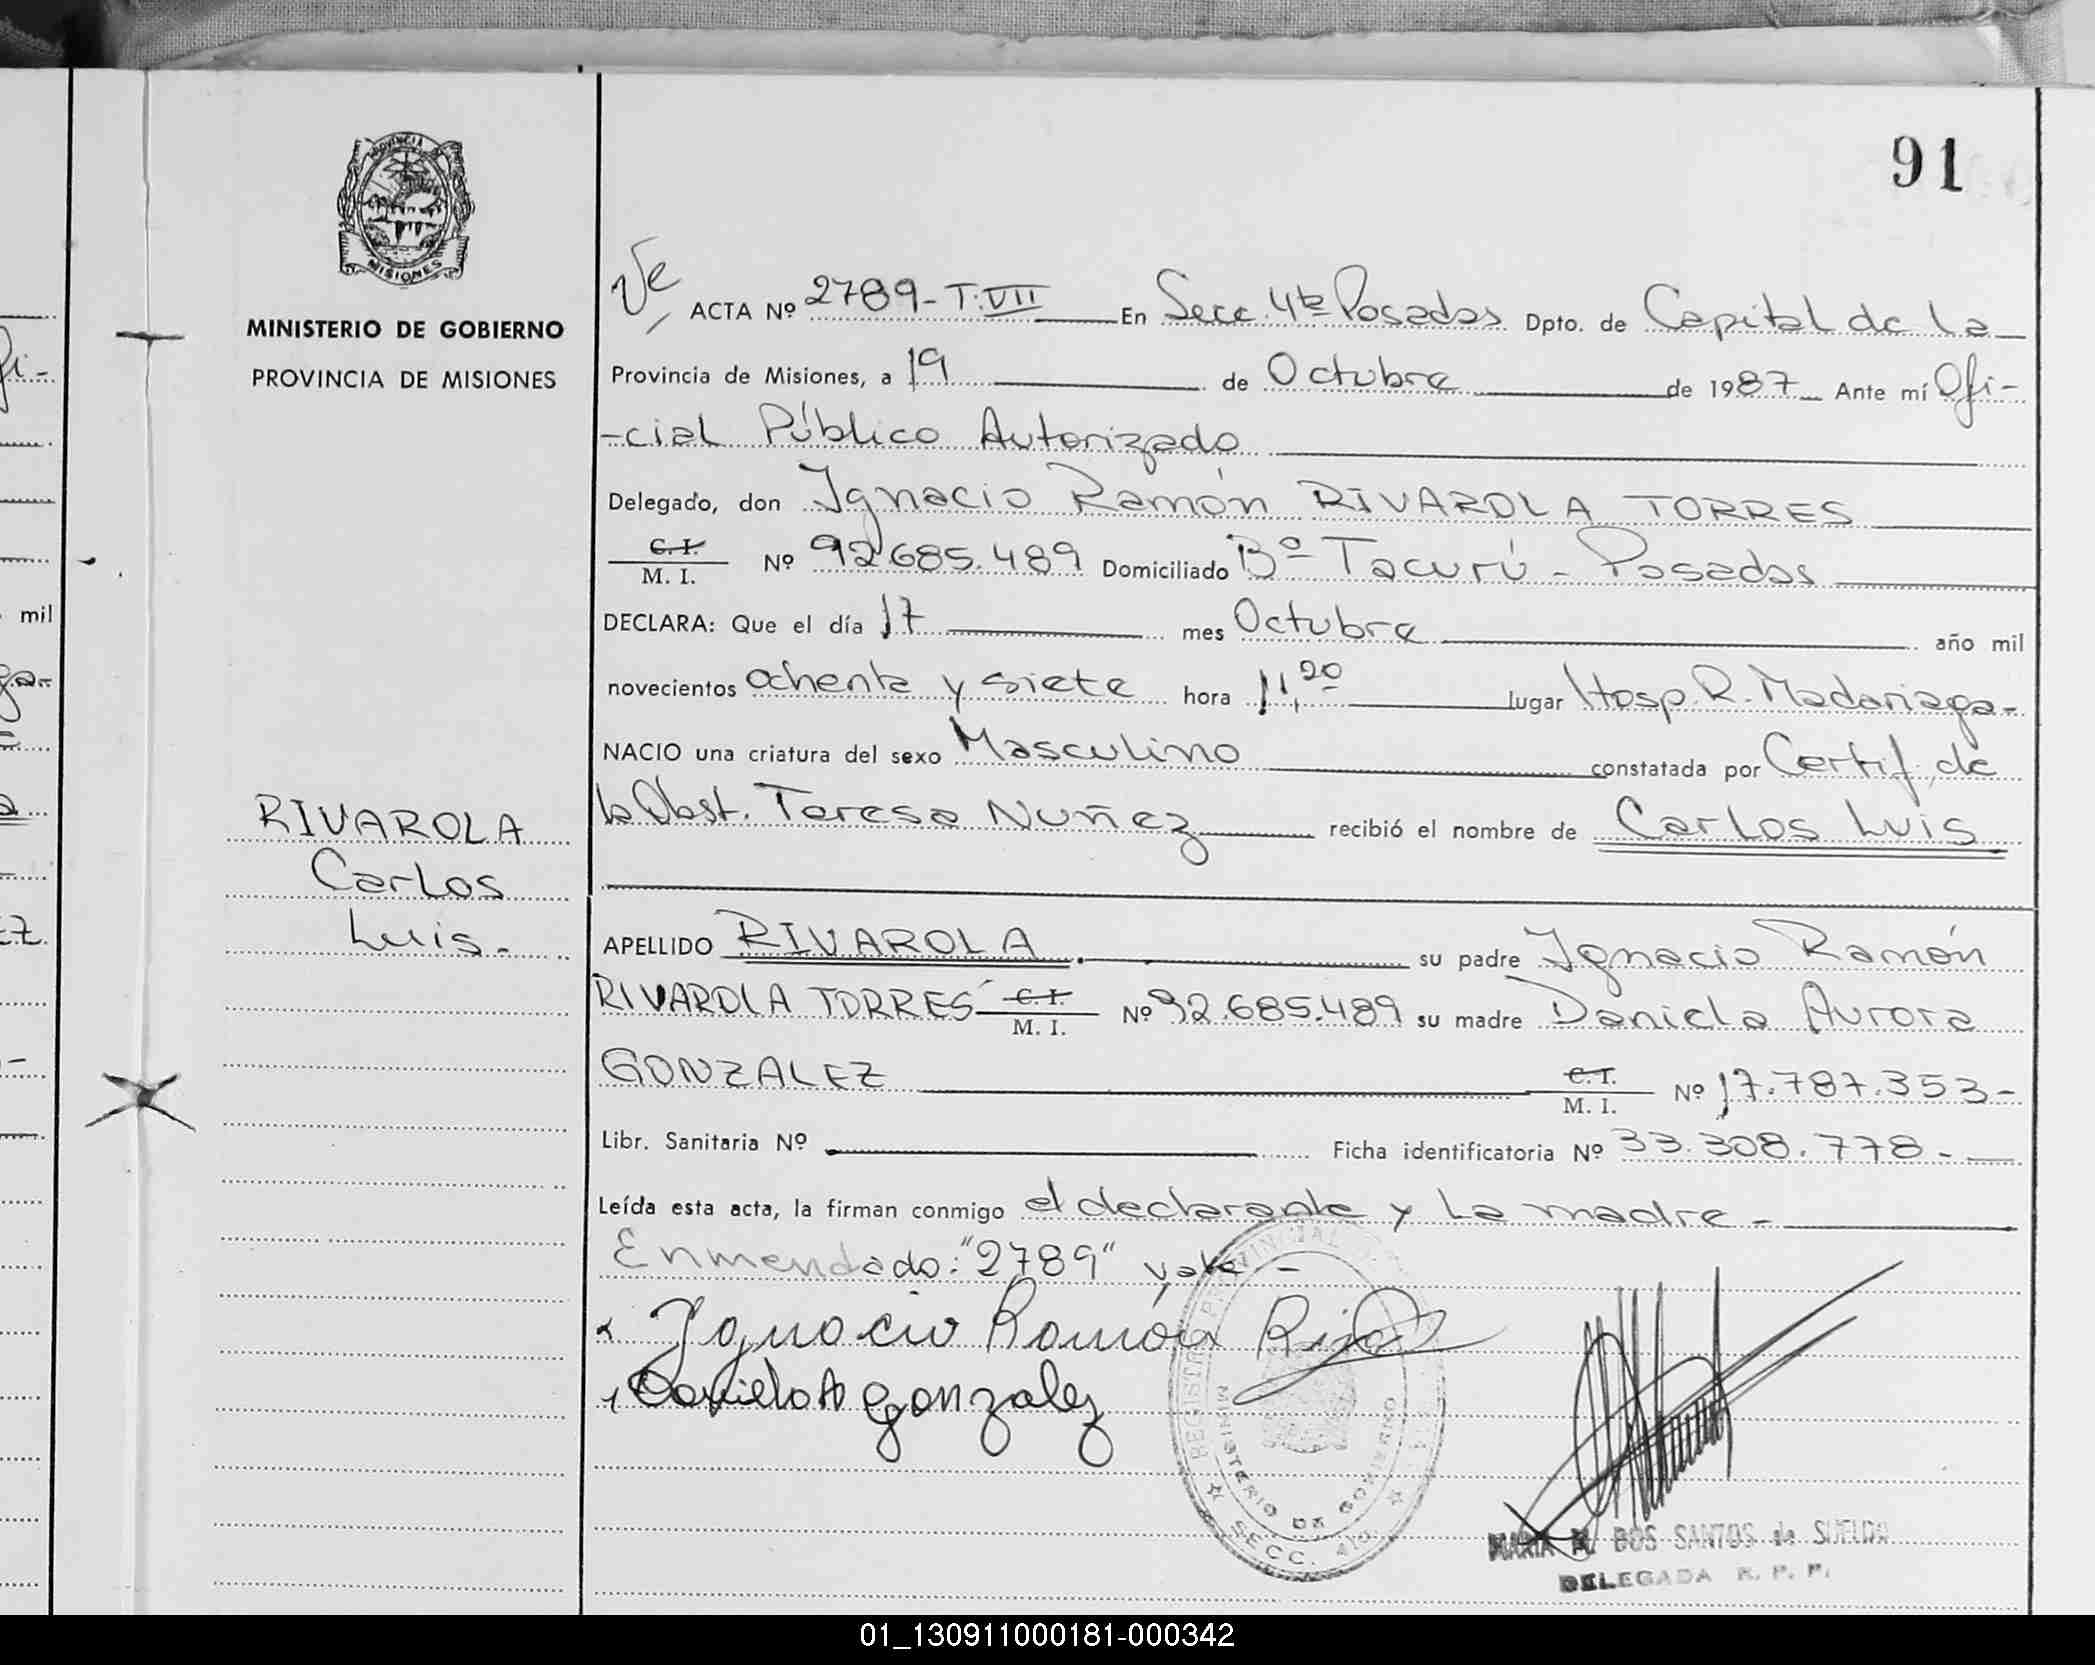 91
PROVINCIA DE
MISIONES
MINISTERIO DE GOBIERNO
PROVINCIA DE MISIONES
ACTA Nº 2789-T.VII En Secc. 4ta Posadas Dpto. de Capital de la
Provincia de Misiones, a 19 de Octubre de 1987 Ante mí Ofi-
-cial Público Autorizado
Delegado, don Ignacio Ramón RIVAROLA TORRES
C.I. M. I. Nº 92.685.489 Domiciliado Bº Tacurú - Posadas
DECLARA: Que el día 17 mes Octubre año mil
novecientos ochenta y siete hora 11,20 lugar Hosp. R. Madariaga-
NACIO una criatura del sexo Masculino constatada por Certif. de
la Obst. Teresa Nuñez recibió el nombre de Carlos Luis
RIVAROLA
Carlos
Luis.-
APELLIDO RIVAROLA su padre Ignacio Ramón
RIVAROLA TORRES C.I. M. I. Nº 92.685.489 su madre Daniela Aurora
GONZALEZ C.I. M. I. Nº 17.787.353-
Libr. Sanitaria Nº Ficha identificatoria Nº 33.308.778.-
Leída esta acta, la firman conmigo el declarante y la madre.-
Enmendado: "2789" vale.-
Ignacio Ramón
Daniela A Gonzalez
MINISTERIO DE GOBIERNO
SECC. 4ta
MARIA DOS SANTOS de SUELDO
DELEGADA R. P. P.
mil
01_130911000181-000342